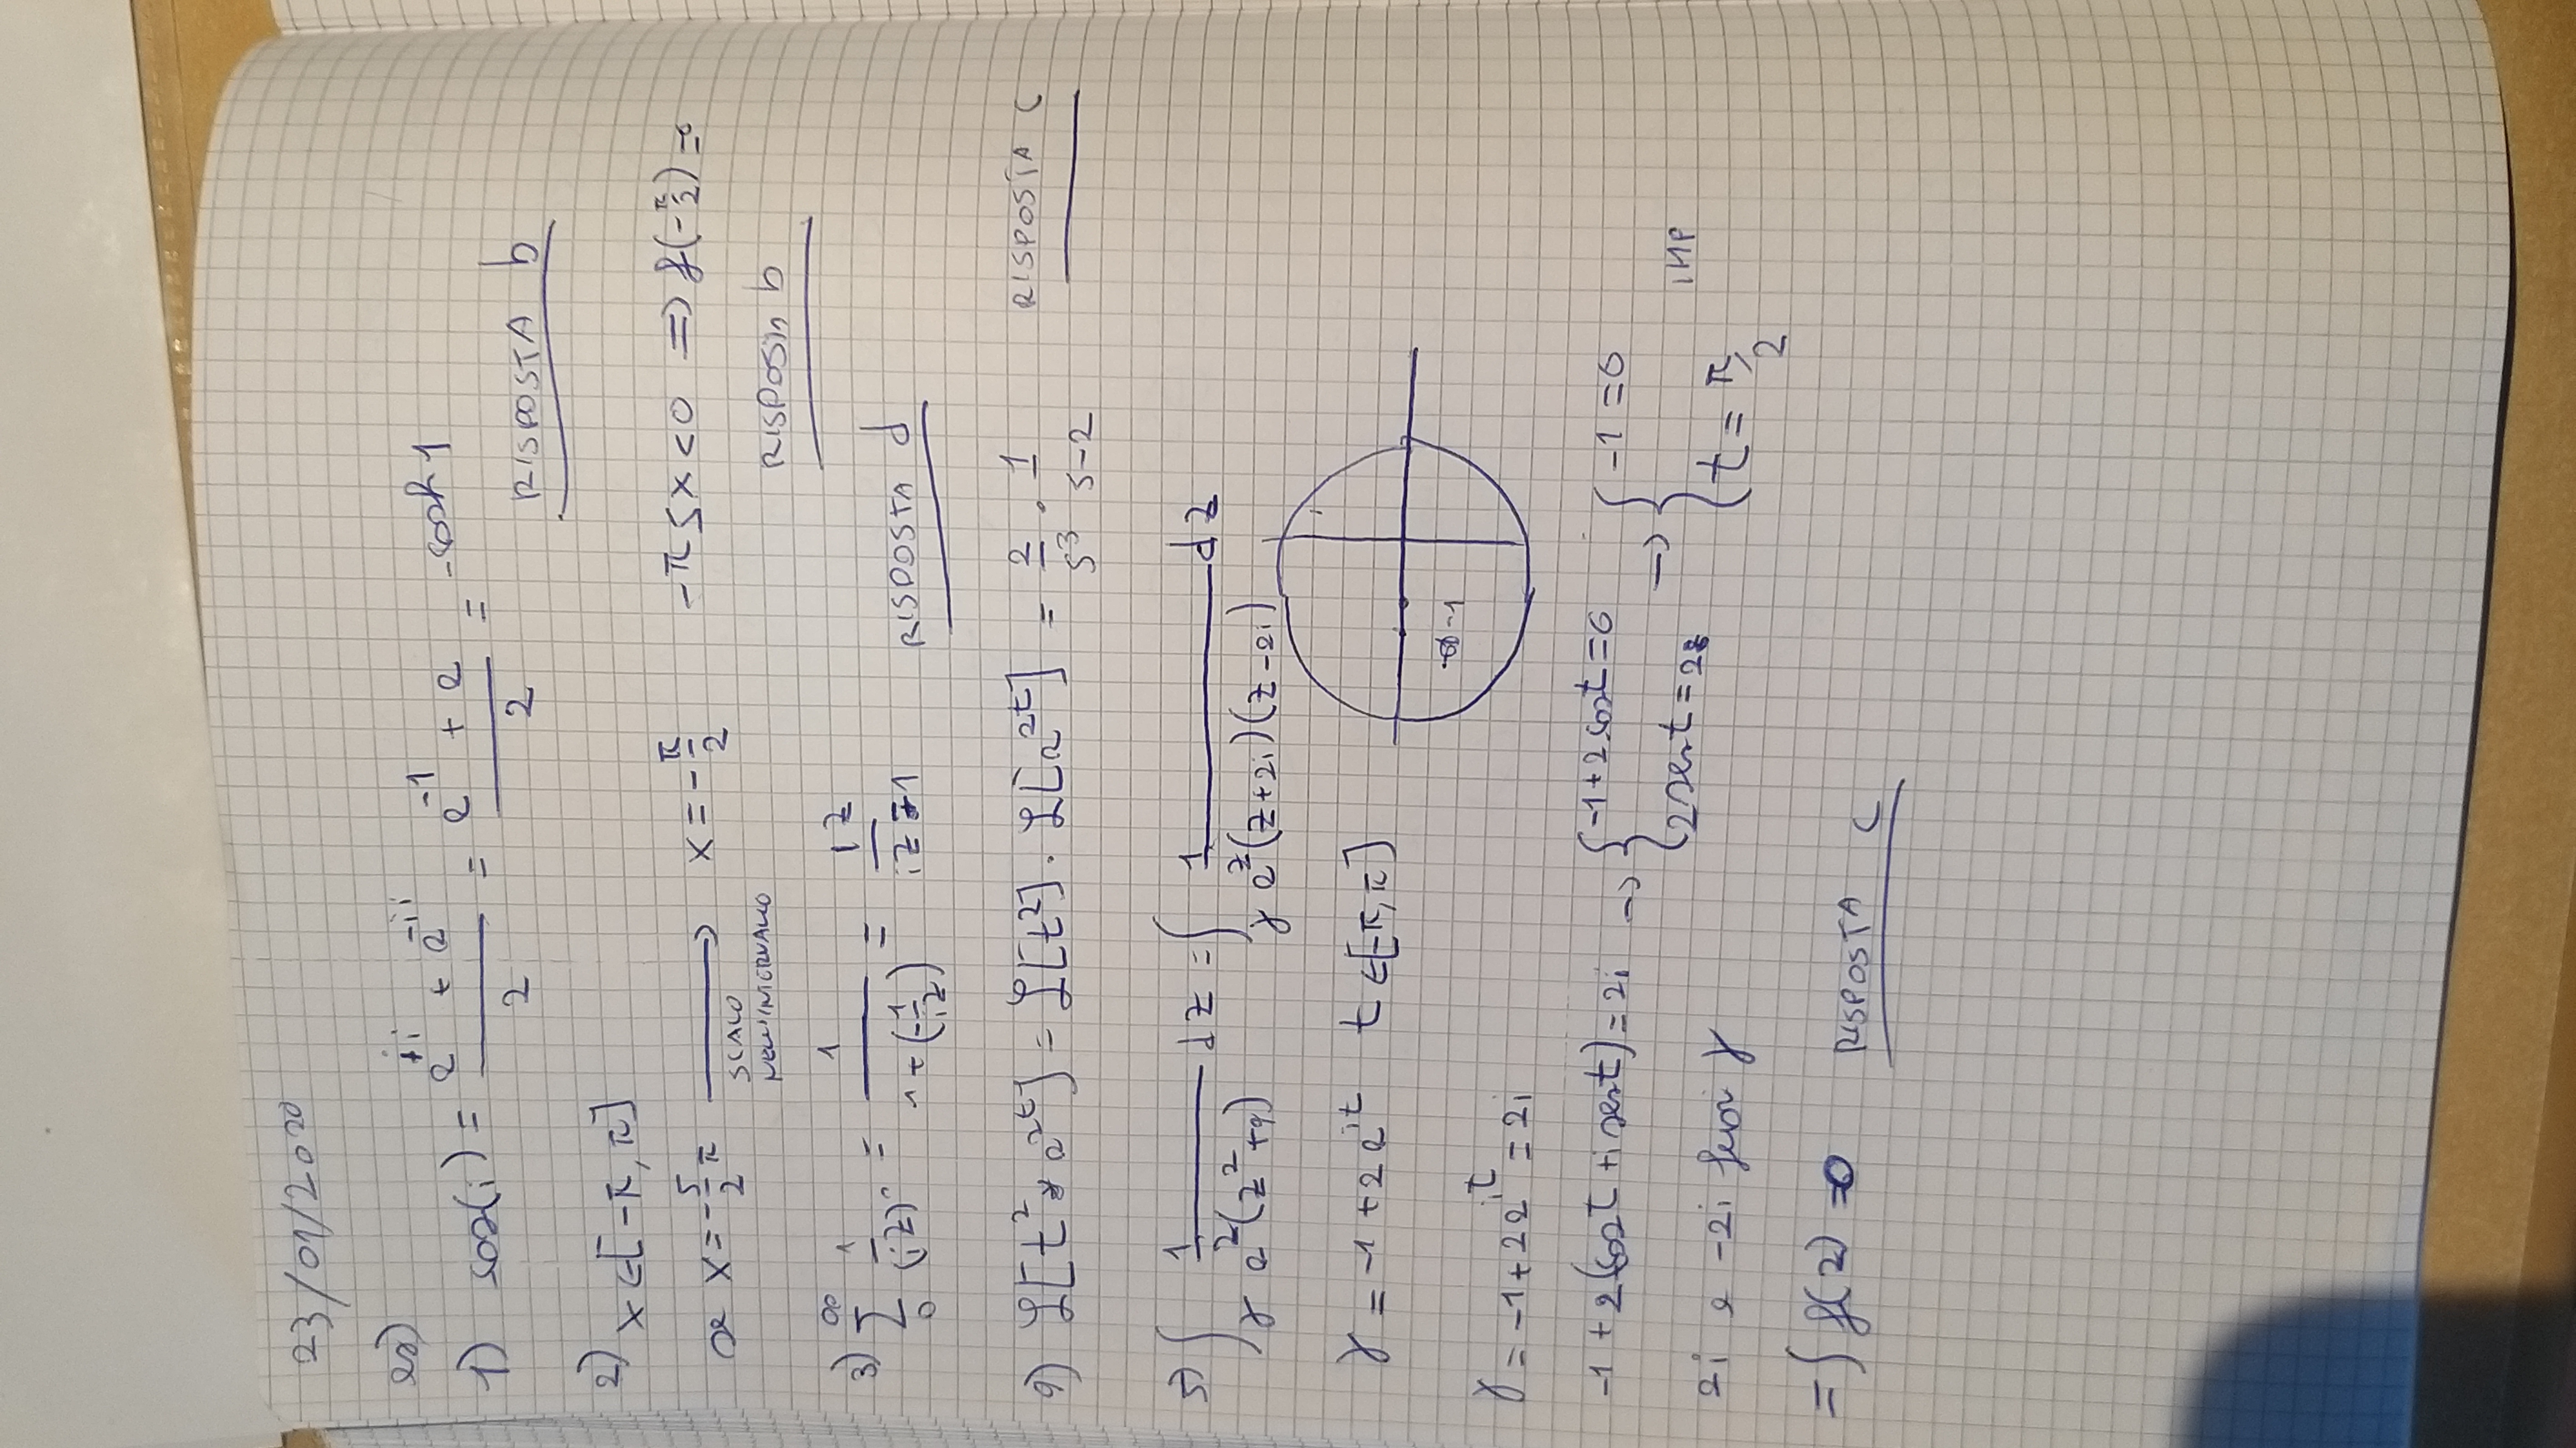 23/01/2020
es)
1) cos(i) = (e^{ii} + e^{-ii})/2 = (e^{-1} + e)/2 = cosh 1
RISPOSTA b
2) x ∈ [-π, π]
se x = -5/2 π ⟶ x = -π/2   -π ≤ x < 0 ⇒ f(-π/2) = 0
SCALO
NELL'INTERVALLO
RISPOSTA b
3) ∑_0^∞ 1/(iz)^n = 1/(1 + (-1/iz)) = iz/(iz - 1)
RISPOSTA d
4) ℒ[t^2 * e^{2t}] = ℒ[t^2] · ℒ[e^{2t}] = 2/s^3 · 1/(s-2)
RISPOSTA c
5) ∫_γ 1/(e^z (z^2+4)) dz = ∫_γ 1/(e^z (z+2i)(z-2i)) dz
γ = -1 + 2e^{it}   t ∈ [-π, π]
-1
γ = -1 + 2e^{it} = 2i
-1 + 2(cos t + i sen t) = 2i → { -1 + 2 cos t = 0 → { -1 = 0
2 sen t = 2   t = π/2   IMP
2i e -2i fuori γ
= ∫ f(z) = 0   RISPOSTA c